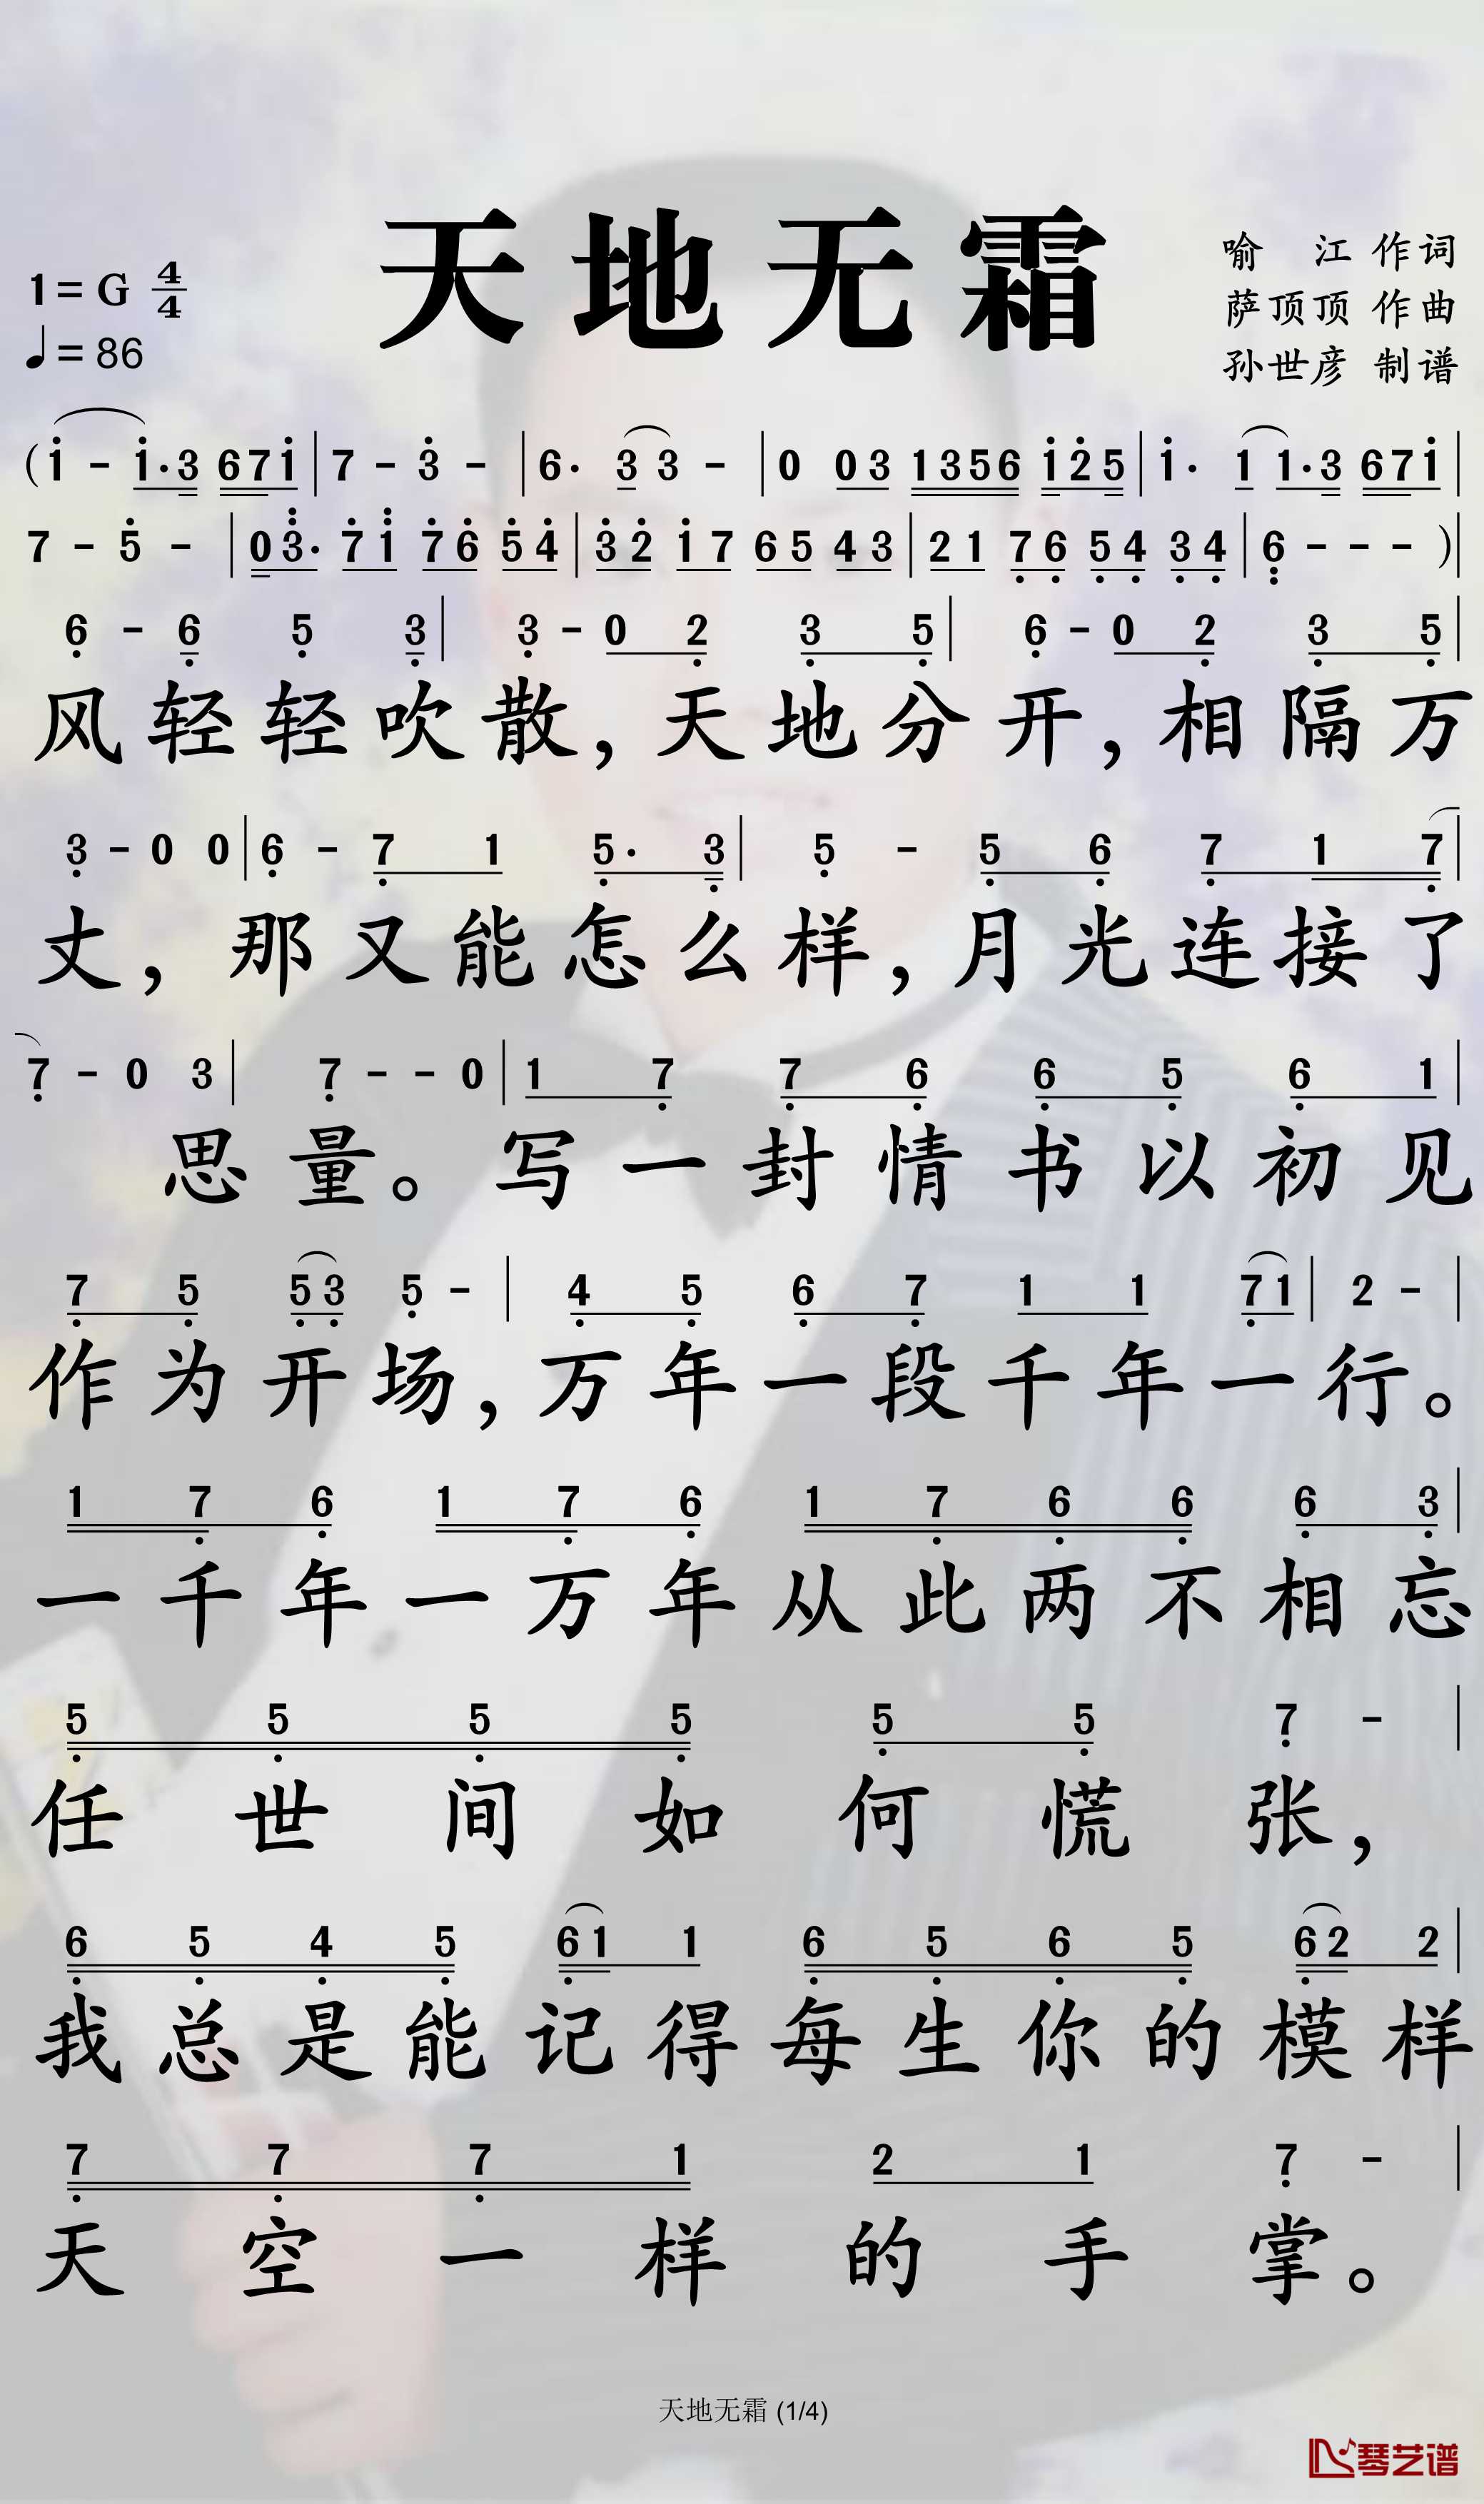 天地无霜
喻 江 作词
1=G 4/4
萨顶顶 作曲
♩=86
孙世彦 制谱
( 1̇ - 1̇· 3 6 7 1̇ | 7 - 3̇ - | 6· 3 3 - | 0 0 3 1 3 5 6 1̇ 2̇ 5 | 1̇· 1 1· 3 6 7 1̇ |
7 - 5̇ - | 0 3̇̇· 7̇ 1̇̇ 7̇ 6̇ 5̇ 4̇ | 3̇ 2̇ 1̇ 7 6 5 4 3 | 2 1 7̣ 6̣ 5̣ 4̣ 3̣ 4̣ | 6̣̣ - - - ) |
6̣ - 6̣ 5̣ 3̣ | 3̣ - 0 2̣ 3̣ 5̣ | 6̣ - 0 2̣ 3̣ 5̣ |
风轻轻吹散,天地分开,相隔万
3̣ - 0 0 | 6̣ - 7̣ 1 5̣· 3̣ | 5̣ - 5̣ 6̣ 7̣ 1 7̣ |
丈,那又能怎么样,月光连接了
7̣ - 0 3 | 7̣ - - 0 | 1 7̣ 7̣ 6̣ 6̣ 5̣ 6̣ 1 |
思量。写一封情书以初见
7̣ 5̣ 5̣ 3̣ 5̣ - | 4̣ 5̣ 6̣ 7̣ 1 1 7̣ 1 | 2 - |
作为开场,万年一段千年一行。
1 7̣ 6̣ 1 7̣ 6̣ 1 7̣ 6̣ 6̣ 6̣ 3̣ |
一千年一万年从此两不相忘
5̣ 5̣ 5̣ 5̣ 5̣ 5̣ 7̣ - |
任世间如何慌张,
6̣ 5̣ 4̣ 5̣ 6̣ 1 1 6̣ 5̣ 6̣ 5̣ 6̣ 2 2 |
我总是能记得每生你的模样
7̣ 7̣ 7̣ 1 2 1 7̣ - |
天空一样的手掌。
天地无霜 (1/4)
琴艺谱